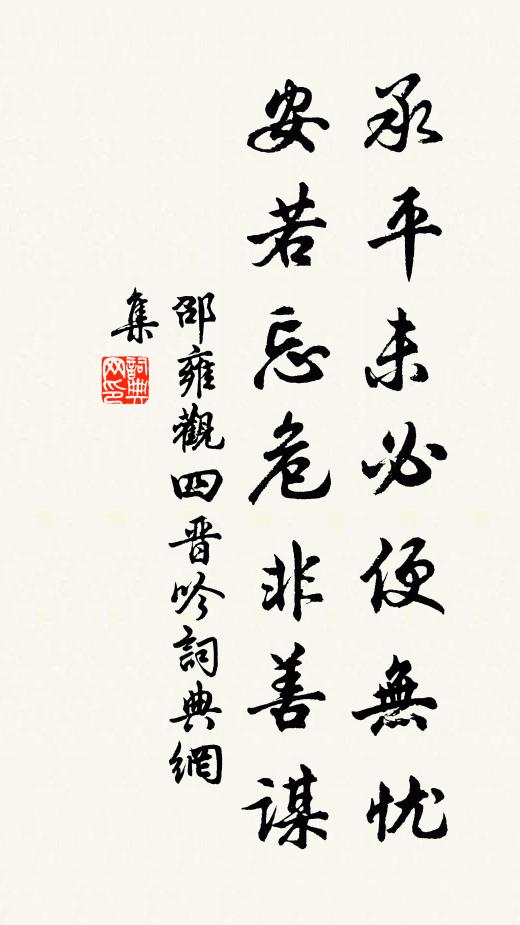 承平未必便無忧
安若忘危非善谋
邵雍觀四晋吟詞典網
集
詞典
网印